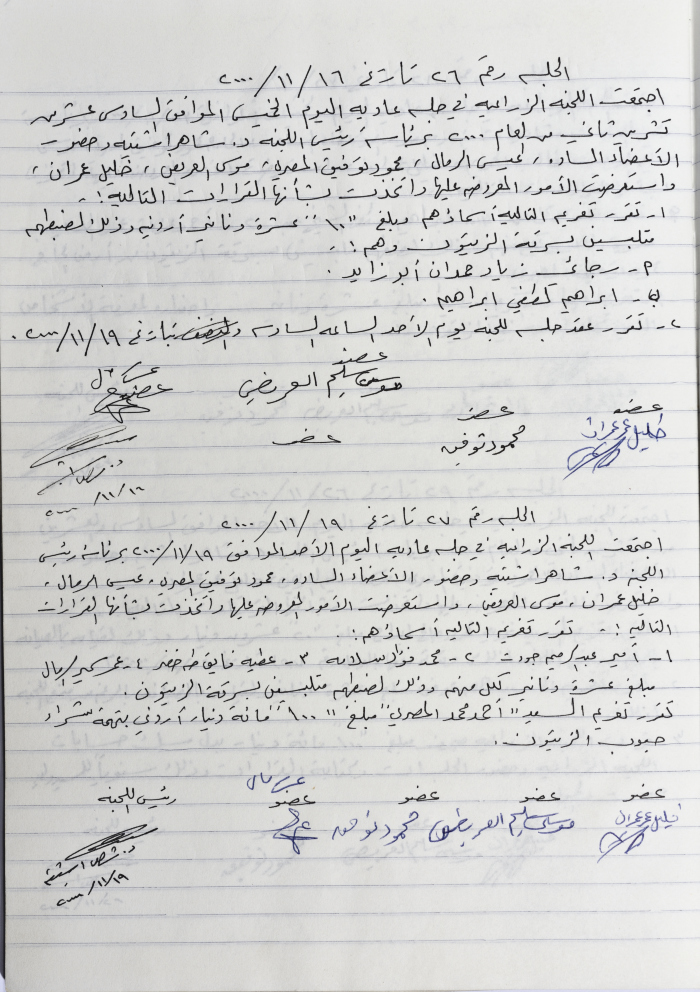 الجلسه رقم ٢٦ تاريخ ١٦/١١/٢٠٠٠
اجتمعت اللجنه الزراعيه في جلسه عاديه اليوم الخميس الموافق لسادس عشر من
تشرين ثاني من لعام ٢٠٠٠ برئاسة رئيس اللجنه د. شاهر اشتيه وحضور
الأعضاء الساده، عيسى الرمال، محمود توفيق المصري، موسى العريض، خليل عمران،
واستعرضت الأمور المعروضه عليها واتخذت بشأنها القرارات التاليه:-
١- تقرر تغريم التاليه أسماؤهم مبلغ "١٠" عشرة دنانير أردنيه وذلك لضبطهم
متلبسين بسرقة الزيتون وهم:-
م- رجائي زياد حمدان أبو زايد.
ن- ابراهيم لطفي ابراهيم.
٢- تقرر عقد جلسه للجنه يوم الأحد الساعه السادسه بتاريخ ١٩/١١/٢٠٠٠.
عضو
عضو
موسى سليم العريض
عضو
خليل عمران
عضو
محمود توفيق
عضو
١٦/١١/٢٠٠٠
الجلسه رقم ٢٧ تاريخ ١٩/١١/٢٠٠٠
اجتمعت اللجنه الزراعيه في جلسه عاديه اليوم الأحد الموافق ١٩/١١/٢٠٠٠ برئاسة رئيس
اللجنه د. شاهر اشتيه وحضور الأعضاء الساده، محمود توفيق المصري، عيسى الرمال،
خليل عمران، موسى العريض، واستعرضت الأمور المعروضه عليها واتخذت بشأنها القرارات
التاليه:- تقرر تغريم التاليه أسماؤهم:
١- أمير عبد الرحيم جودت ٢- محمد فؤاد سلامه ٣- عطيه فايق طه خضر ٤- عمر سمير الرمال
مبلغ عشرة دنانير لكل منهم وذلك لضبطهم متلبسين بسرقة الزيتون.
تقرر تغريم السيد "أحمد محمد المصري" مبلغ "١٠٠" مائة دينار أردني بتهمة شراء
حبوب الزيتون.
عضو عضو عضو عضو رئيس اللجنه
خليل عمران موسى سليم العريض محمود توفيق
١٩/١١/٢٠٠٠